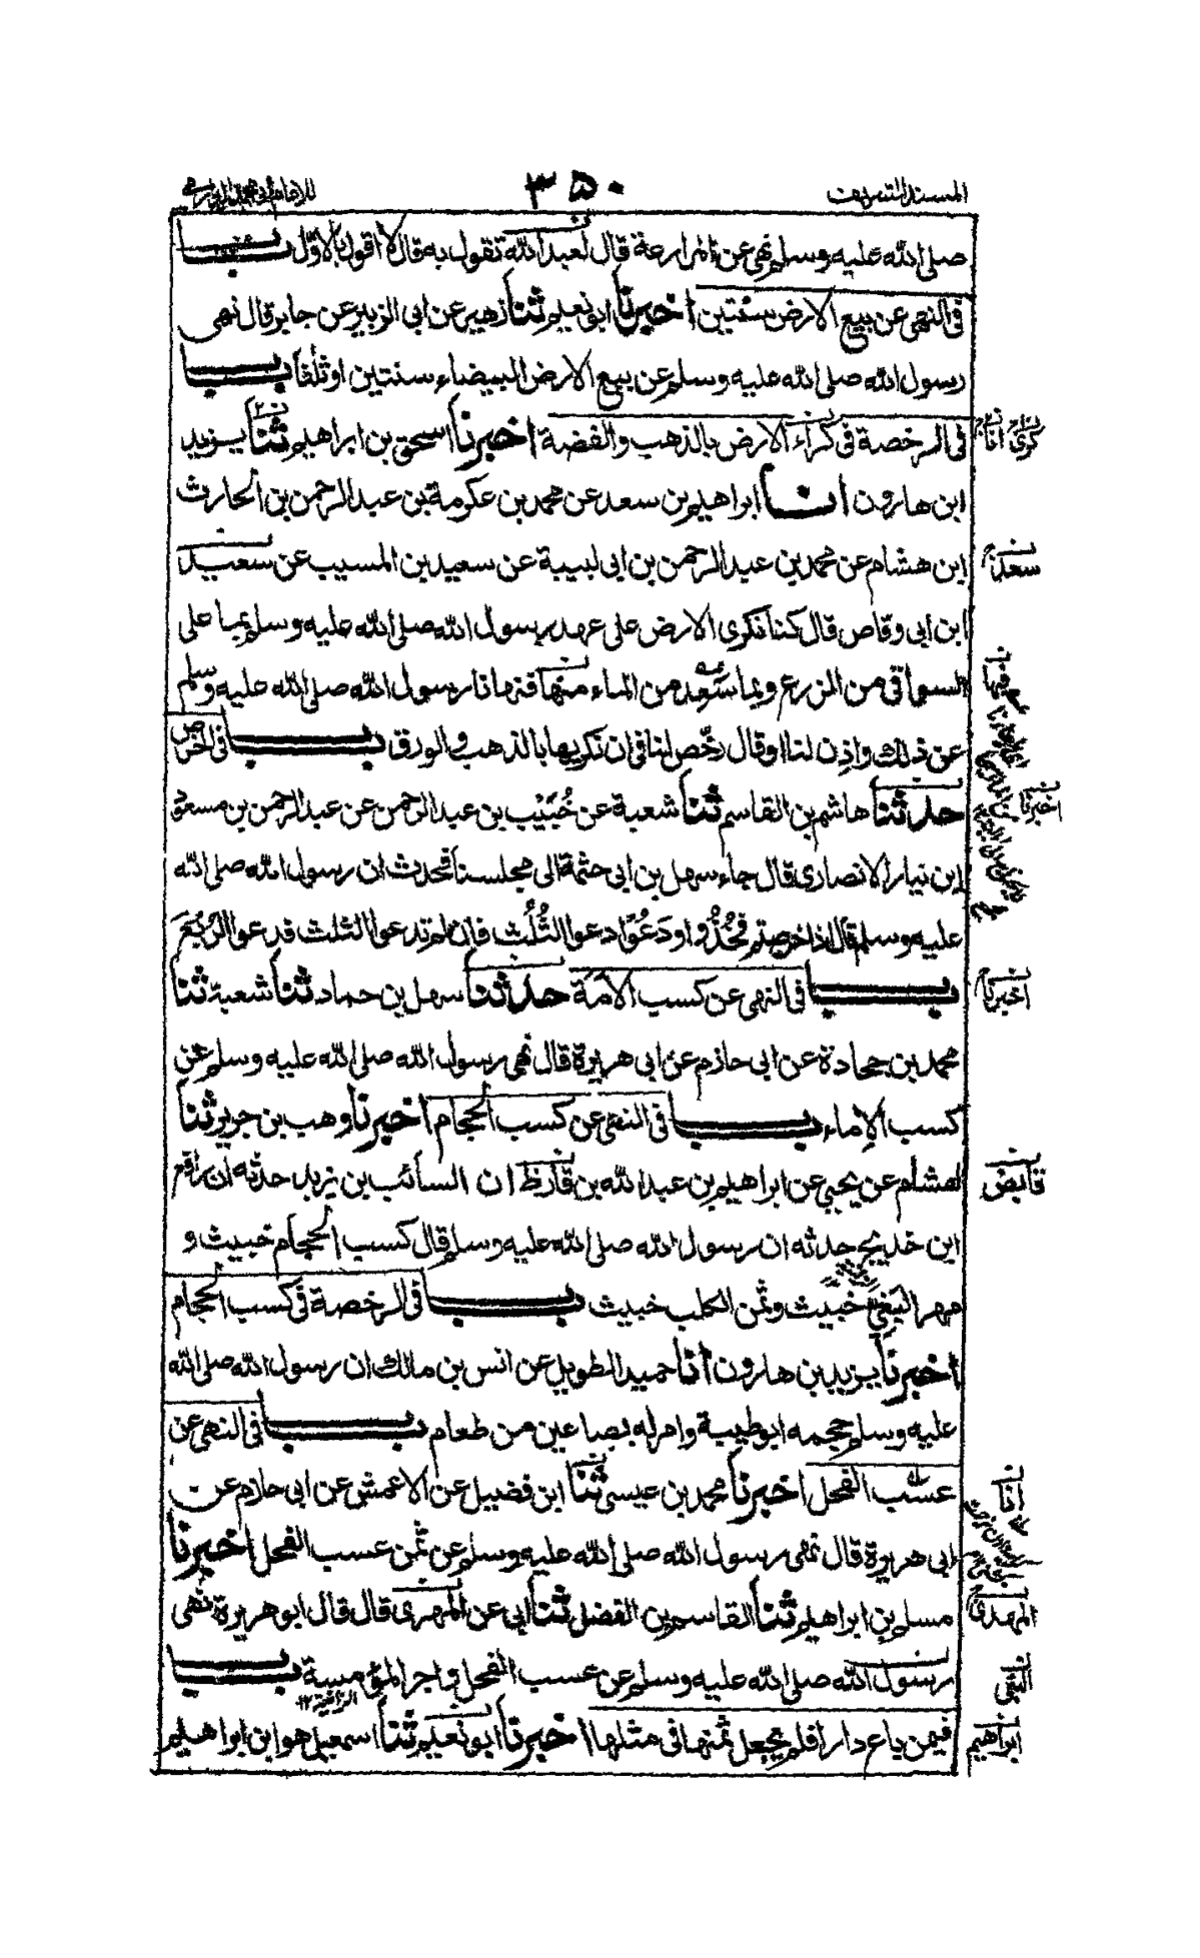 المسند الشريف
٣٥٠
صلى الله عليه وسلم نهى عن المزارعة قال لعبد الله تقول به قال لا اقول بالاول باب
فى النهى عن بيع الارض سنتين اخبرنا ابو نعيم ثنا زهير عن ابى الزبير عن جابر قال نهى
رسول الله صلى الله عليه وسلم عن بيع الارض البيضاء سنتين او ثلثا باب
فى الرخصة فى كراء الارض بالذهب والفضة اخبرنا اسحق بن ابراهيم ثنا يزيد
ابن هارون انا ابراهيم بن سعد عن محمد بن عكرمة بن عبد الرحمن بن الحارث
ابن هشام عن محمد بن عبد الرحمن بن ابى لبيبة عن سعيد بن المسيب عن سعيد
ابن ابى وقاص قال كنا نكرى الارض على عهد رسول الله صلى الله عليه وسلم بما على
السواقى من الزرع وبما سَعِد من الماء منها فنهانا رسول الله صلى الله عليه وسلم
عن ذلك واذِن لنا او قال رخّص لنا فى ان نكريها بالذهب والورق باب فى الخرص
حدثنا هاشم بن القاسم ثنا شعبة عن خُبَيْب بن عبد الرحمن عن عبد الرحمن بن مسعود
ابن نيار الانصارى قال جاء سهل بن ابى حثمة الى مجلسنا فحدث ان رسول الله صلى الله
عليه وسلم قال اذا خرصتم فَخُذُوا ودَعُوْا دعوا الثُّلُث فان لم تدعوا الثلث فدعوا الرُّبُعَ
باب فى النهى عن كسب الأمَة حدثنا سهل بن حماد ثنا شعبة ثنا
محمد بن جحادة عن ابى حازم عن ابى هريرة قال نهى رسول الله صلى الله عليه وسلم عن
كسب الإماء باب فى النهى عن كسب الحجام اخبرنا وهب بن جرير ثنا
هشام عن يحيى عن ابراهيم بن عبد الله بن قارظ ان السائب بن يزيد حدثه ان رافع
ابن خديج حدثه ان رسول الله صلى الله عليه وسلم قال كسب الحجام خبيث و
مهر البغى خبيث وثمن الكلب خبيث باب فى الرخصة فى كسب الحجام
اخبرنا يزيد بن هارون أنا حميد الطويل عن انس بن مالك ان رسول الله صلى الله
عليه وسلم حجمه ابو طيبة وامر له بصاعين من طعام باب فى النهى عن
عسب الفحل اخبرنا محمد بن عيسى ثنا ابن فضيل عن الاعمش عن ابى حازم عن
ابى هريرة قال نهى رسول الله صلى الله عليه وسلم عن ثمن عسب الفحل اخبرنا
مسلم بن ابراهيم ثنا القاسم بن الفضل ثنا ابى عن المهرى قال قال ابو هريرة نهى
رسول الله صلى الله عليه وسلم عن عسب الفحل واجر المؤمسة باب
الزانية ١٢
فيمن باع دارا فلم يجعل ثمنها فى مثلها اخبرنا ابو نعيم ثنا اسمعيل هو ابن ابراهيم
كرى
انا
سعد
اخبرنا
اخبرنا
قابض
انا
المهدى
النبى
ابراهيم